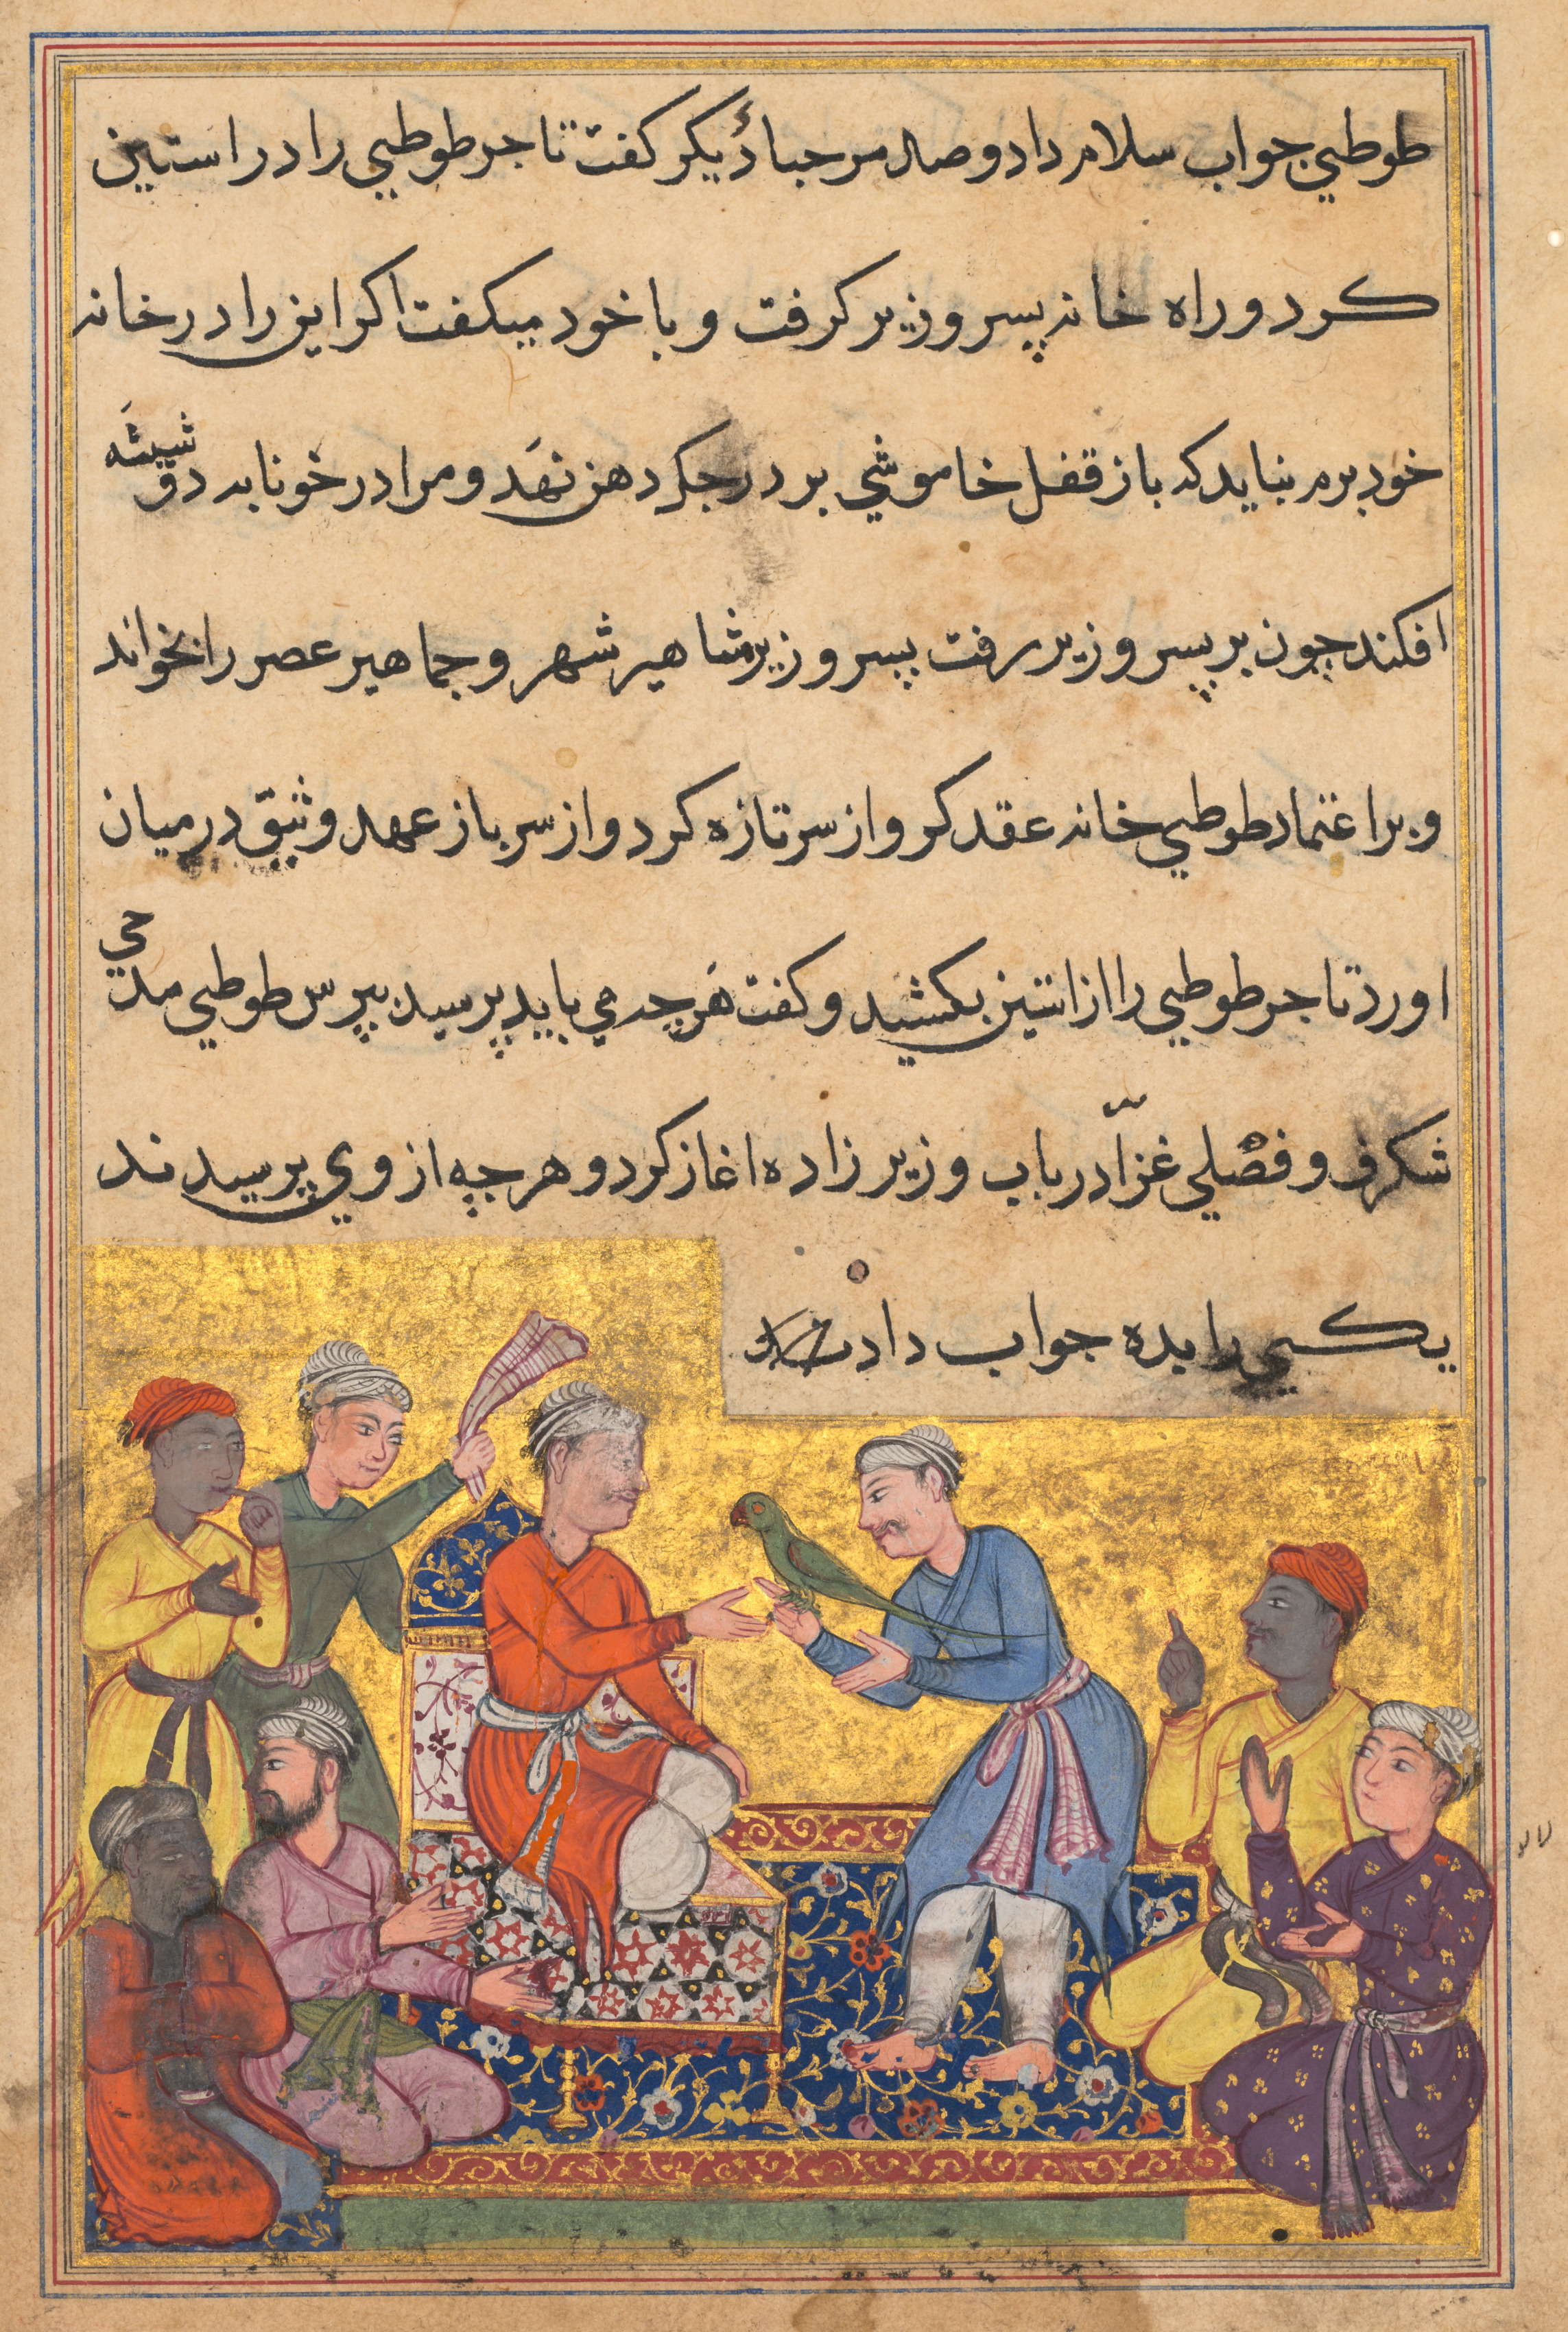 طوطي جواب سلام داد و صد مرحبا دیکر کفت تاجر طوطي را در استین
کرد و راه خانه پسر وزیر کرفت و با خود میکفت اکر این را در خانه
خود برم نباید که باز قفل خاموشي بر درجک دهن نهد و مرا در خونابه دو شیشه
افکند چون بر پسر وزیر رفت پسر وزیر مشاهیر شهر و جماهیر عصر را بخواند
و بر اعتماد طوطي خانه عقد کرو از سر تازه کرد و از سر باز عهد وثیق در میان
اورد تاجر طوطي را از استین بکشید و کفت هر چه مي باید پرسید بپرس طوطي مدحي
شکرف و فصلي غرّا در باب وزیر زاده اغاز کرد و هر چه از وي پرسیدند
یکي را بده جواب داد